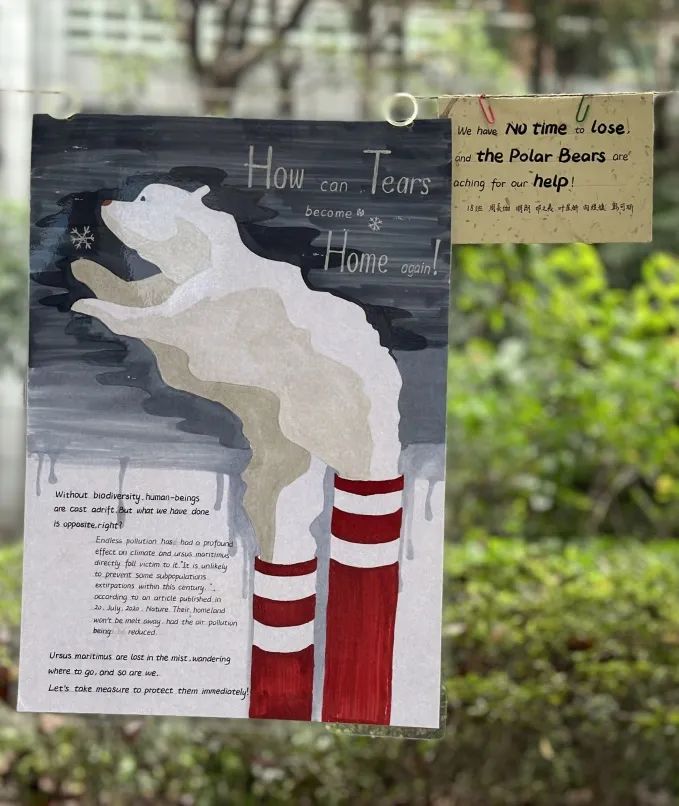 How can Tears
become
Home again!
We have No time to lose,
and the Polar Bears are
aching for our help!
18班
Without biodiversity, human-beings
are cast adrift. But what we have done
is opposite, right?
Endless pollution has had a profound
effect on climate and ursus maritimus
directly fall victim to it. "It is unlikely
to prevent some subpopulations
extirpations within this century. ",
according to an article published in
20. July, 2020. Nature. Their homeland
won't be melt away, had the air pollution
being reduced.
Ursus maritimus are lost in the mist, wandering
where to go, and so are we.
Let's take measure to protect them immediately!